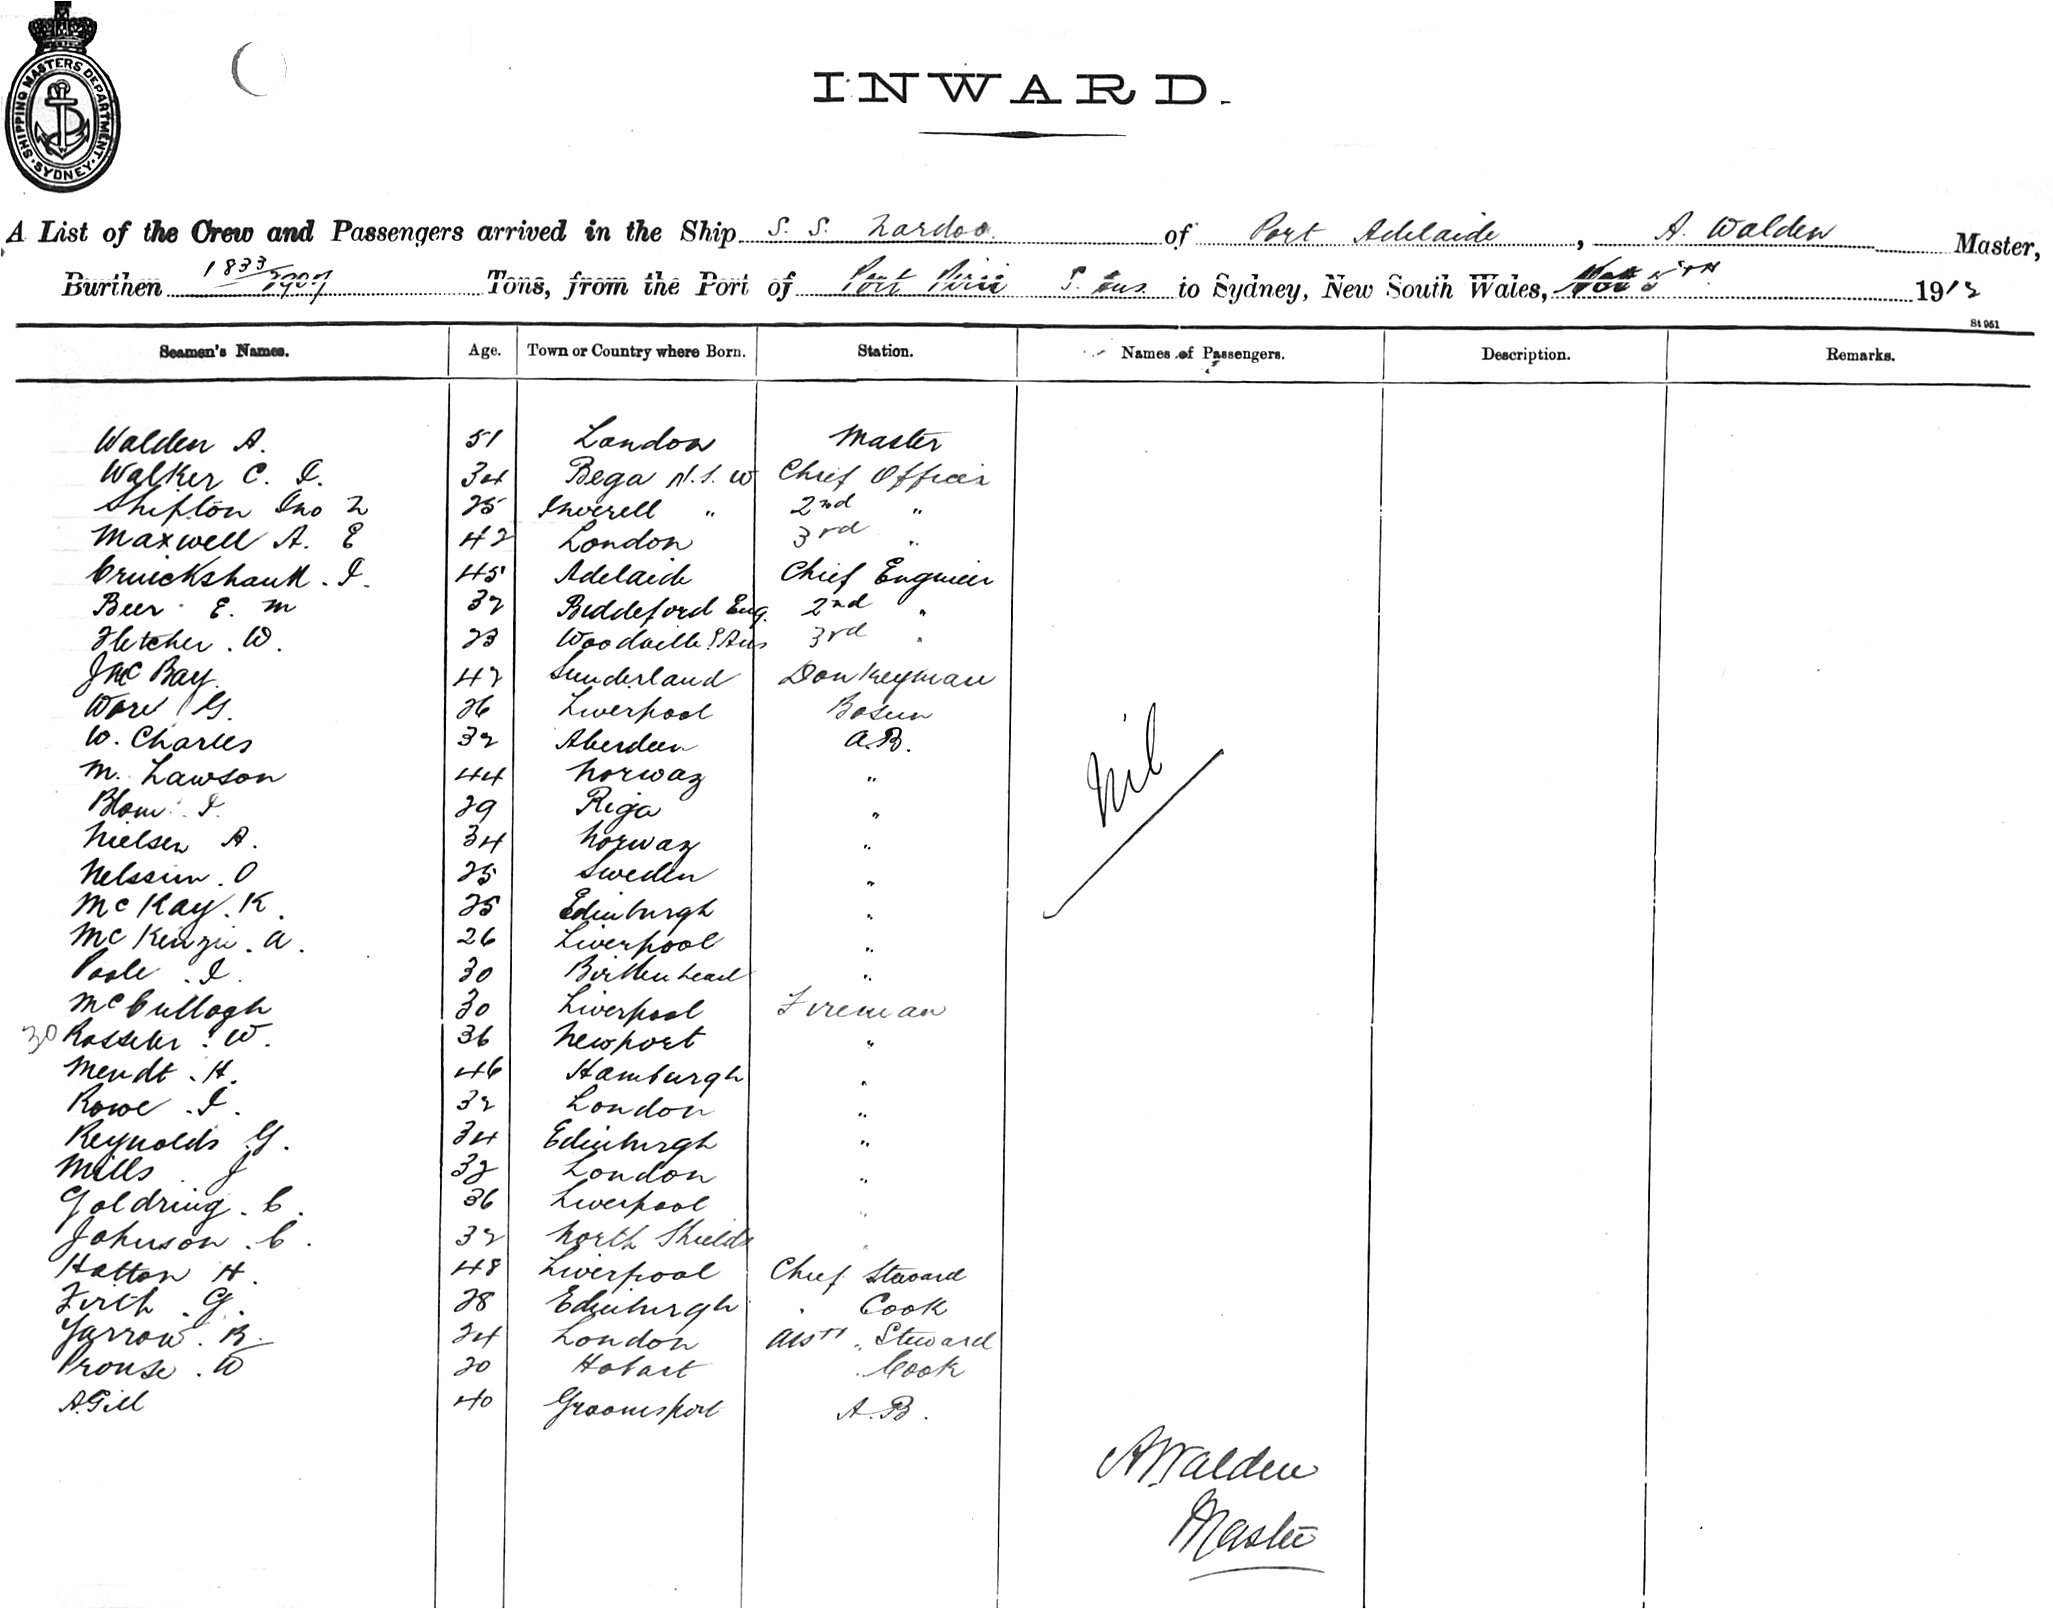 SHIPPING MASTERS DEPARTMENT. SYDNEY.
INWARD.
A List of the Crew and Passengers arrived in the Ship S. S. Nardoo. of Port Adelaide, A. Walden Master,
Burthen 1833/2907 Tons, from the Port of Port Pirie S. Aus. to Sydney, New South Wales, Nov 5TH 1912
St 951
Seamen's Names. Age. Town or Country where Born. Station. Names of Passengers. Description. Remarks.
Walden A. 51 London Master
Walker C. I. 34 Bega N.S.W Chief Officer
Shipton Jno 25 Inverell " 2nd "
Maxwell A. E 42 London 3rd "
Cruickshank. I. 45 Adelaide Chief Engineer
Beer E. M 32 Biddeford Eng. 2nd "
Fletcher. W. 23 Woodville S Aus 3rd "
Bay. 42 Sunderland Donkeyman
Ware G. 26 Liverpool Bosun
W. Charles 32 Aberdeen A.B.
M. Lawson 44 Norway "
Blom I. 29 Riga "
Nielsen A. 34 Norway "
Nelssun. O 25 Sweden "
McKay. K. 25 Edinburgh "
McKenzie. A. 26 Liverpool "
Poole. I. 30 Birkenhead "
McCullagh 30 Liverpool Fireman
30 Rosseter. W. 36 Newport "
Mendt. H. 46 Hamburgh "
Rowe. I. 32 London "
Reynolds G. 34 Edinburgh "
Mills J 32 London "
Goldring. C. 36 Liverpool "
Johnson. C. 32 North Shields "
Hatton H. 48 Liverpool Chief Steward
Firth. G. 28 Edinburgh " Cook
Yarrow. B. 24 London Asst. Steward
Prouse. W 20 Hobart " Cook
A. Gill 40 Groomsport A.B.
Nil
A Walden
Master